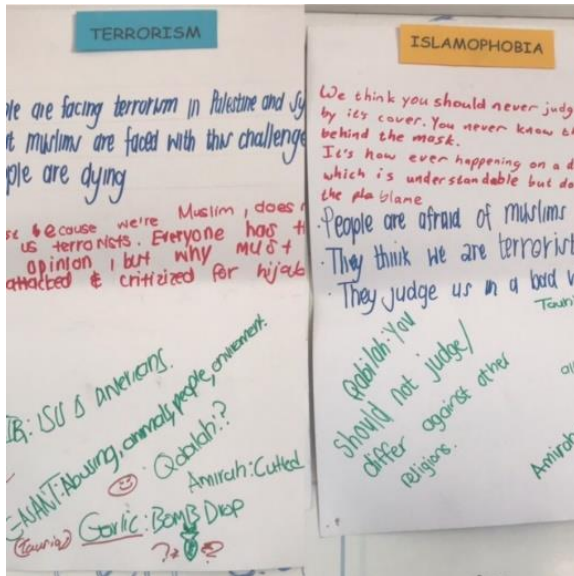 TERRORISM
ple are facing terrorism in Palestine and Sy
t muslims are faced with this challenge
ple are dying
because we're Muslim, does
us terrorists. Everyone has t
opinion, but why must
attacked & critizized for hijab
ISIS
Abusing, animals, people, environment.
Qadalah:?
Amirah: Cutted
Garlic: BomB Drop
ISLAMOPHOBIA
We think you should never judg
by it's cover. You never know th
behind the mask.
It's how ever happening on a d
which is understandable but do
the
People are afraid of muslims
They think we are terrorist
They judge us in a bad w
should not judge/
differ against other
religions.
Amirah